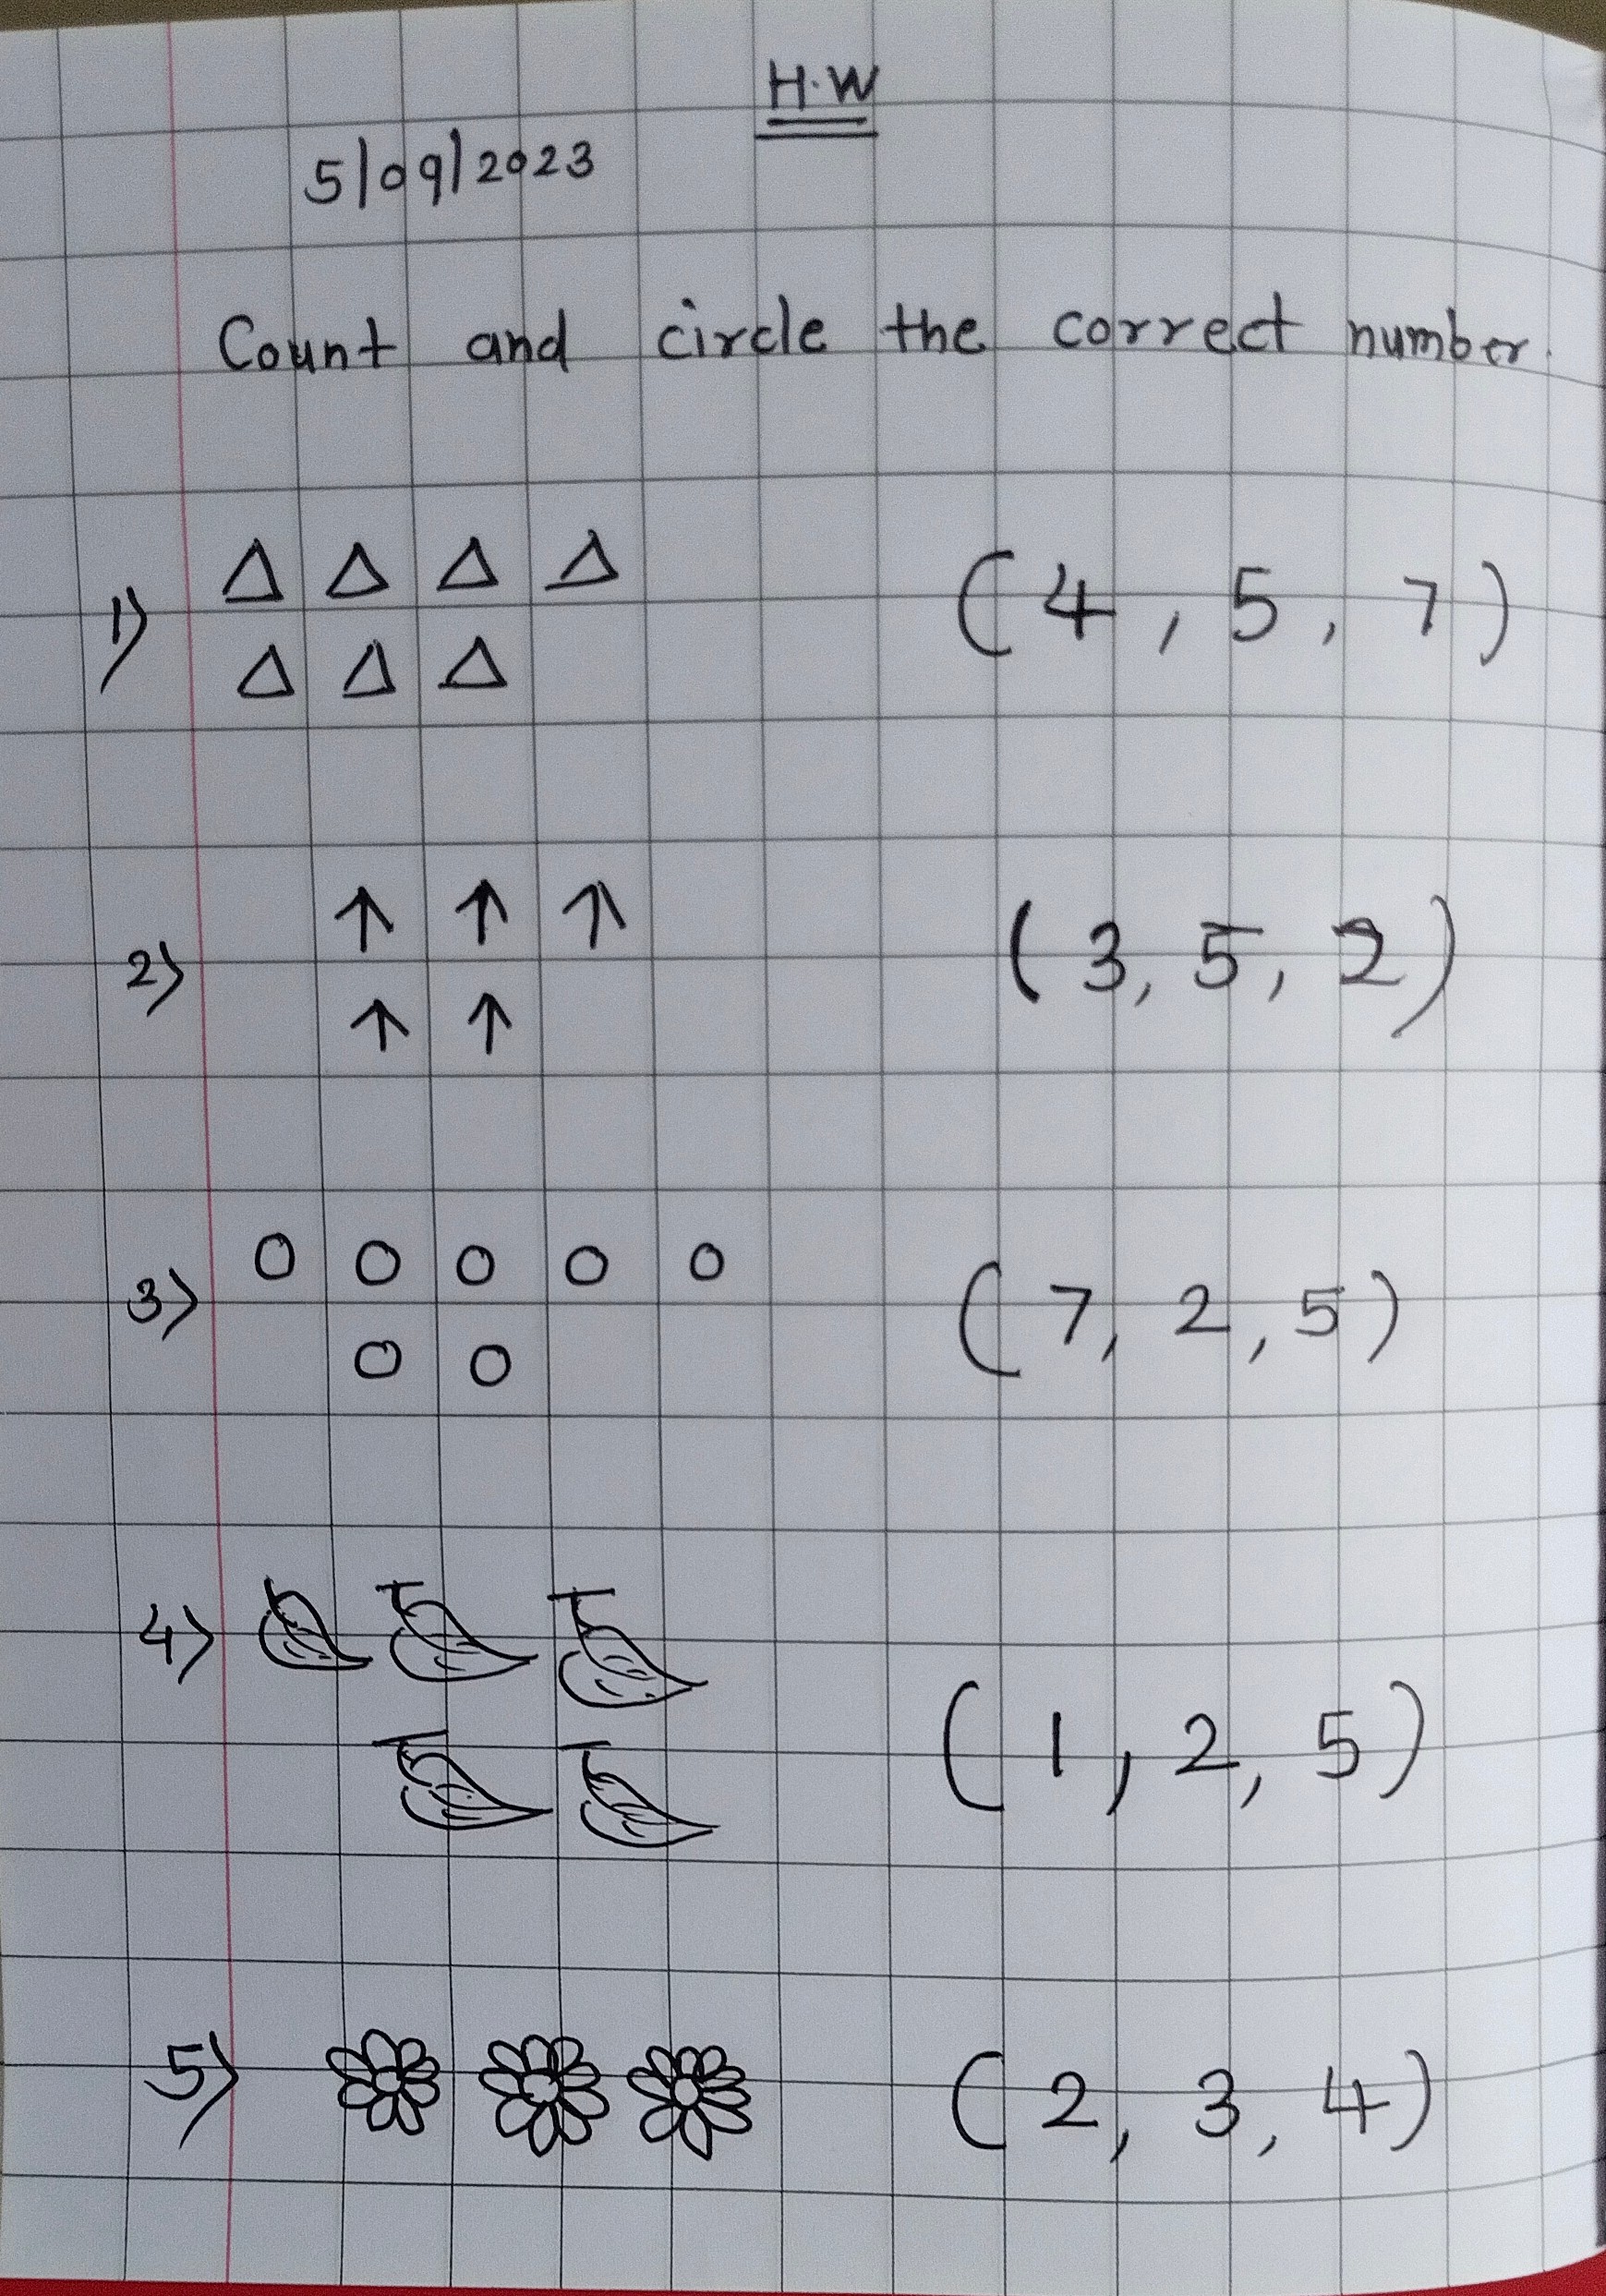 H.W
5/09/2023
Count and circle the correct number.
1) (4, 5, 7)
2) (3, 5, 2)
3) (7, 2, 5)
4) (1, 2, 5)
5) (2, 3, 4)